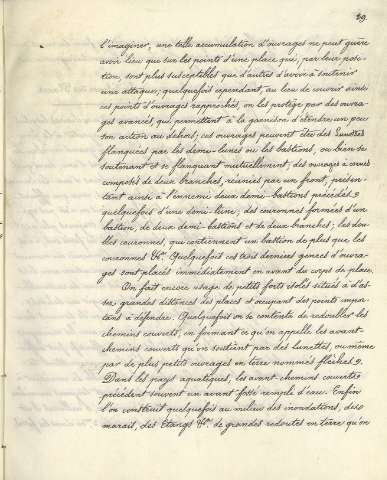 29.
l'imaginer, une telle accumulation d'ouvrages ne peut guère
avoir lieu que sur les points d'une place qui, par leur posi-
tion, sont plus susceptibles que d'autres d'avoir à soutenir
une attaque; quelquefois cependant, au lieu de couvrir ainsi
ces points d'ouvrages rapprochés, on les protège par des ouvra-
ges avancés, qui permettent à la garnison d'étendre un peu
son action au dehors; ces ouvrages peuvent être des Lunettes
flanquées par les demi-lunes ou les bastions, ou bien se
soutenant et se flanquant mutuellement; des ouvrages à cornes
composés de deux branches, réunies par un front, présen-
tant ainsi à l'ennemi deux demi-bastions précédés
quelquefois d'une demi-lune; des couronnes formées d'un
bastion, de deux demi-bastions et de deux branches; les dou-
bles couronnes, qui contiennent un bastion de plus que les
couronnes &a. Quelquefois ces trois derniers genres d'ouvra-
ges sont placés immédiatement en avant du corps de place.
On fait encore usage de petits forts isolés situés à d'as-
sez grandes distances des places et occupant des points impor-
tans à défendre. Quelquefois on se contente de redoubler les
chemins couverts, en formant ce qu'on appelle les avant-
chemins couverts qu'on soutient par des lunettes, ou même
par de plus petits ouvrages en terre nommés flèches.
Dans les pays aquatiques, les avant-chemins couverts
précèdent souvent un avant fossé rempli d'eau. Enfin
l'on construit quelquefois au milieu des inondations, des
marais, des Etangs &a. de grandes redoutes en terre qu'on